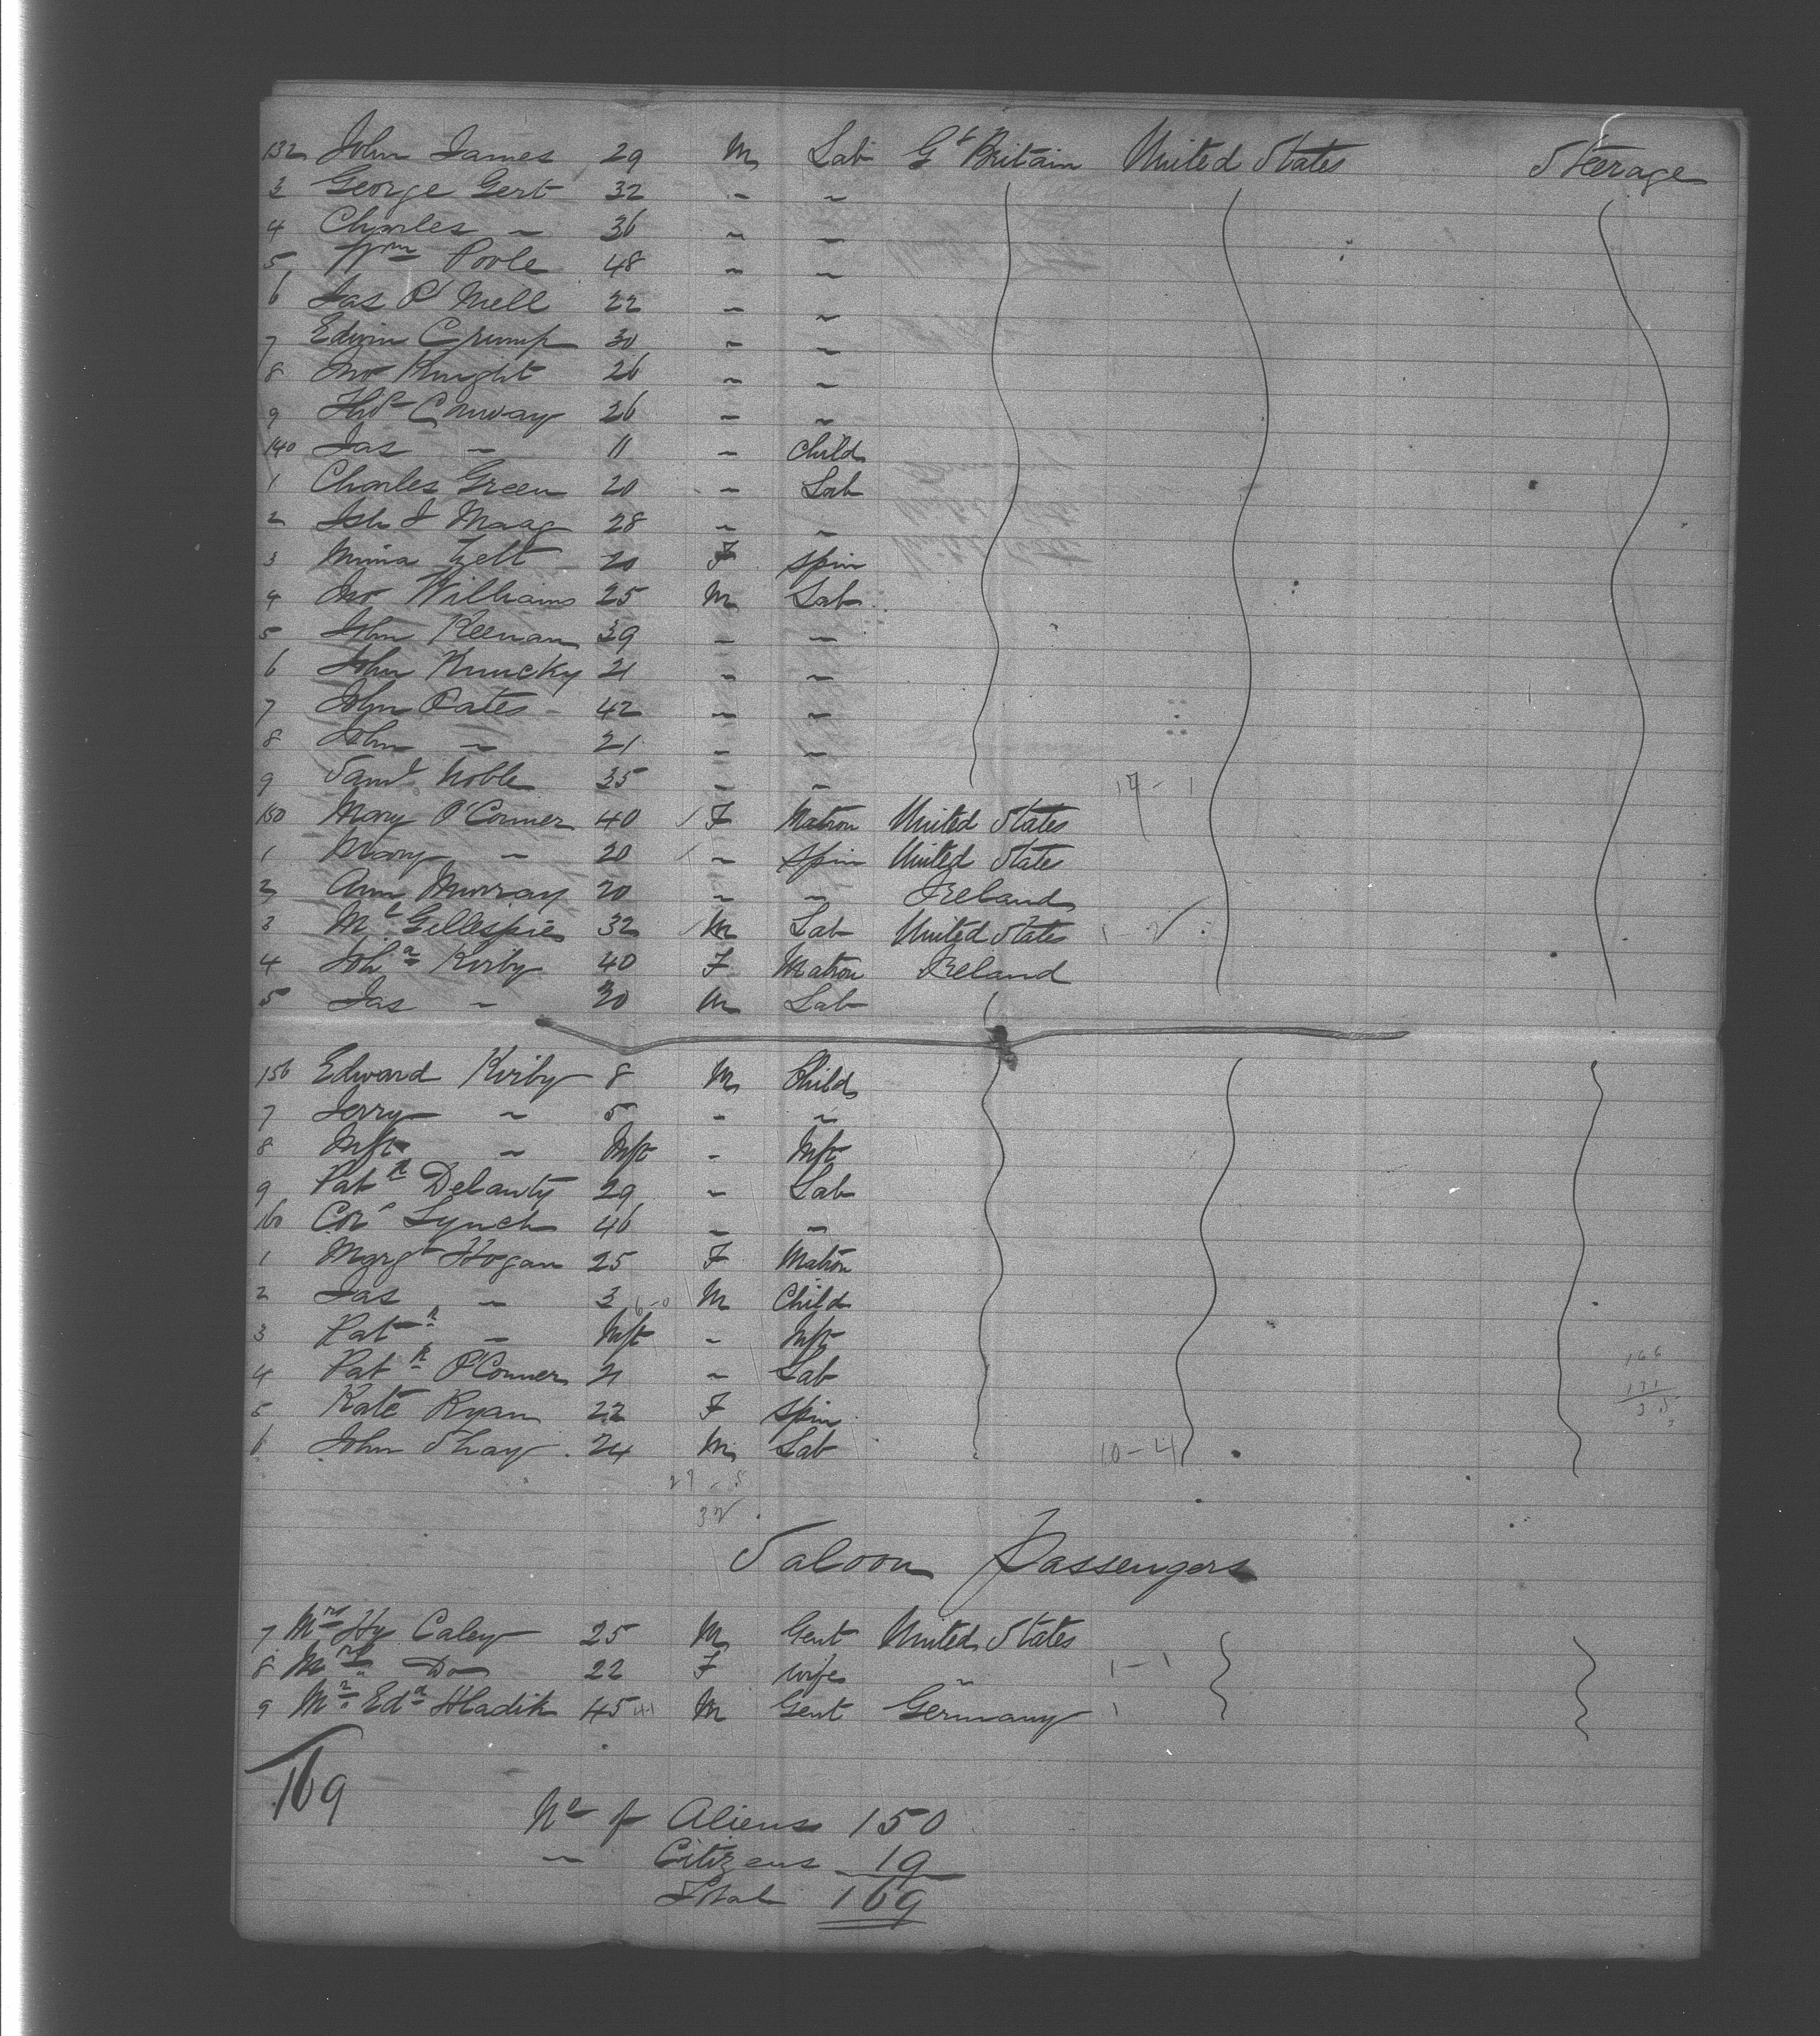 132 John James 29 M Lab Gt Britain United States Steerage
3 George Gert 32 " "
4 Charles " 36 " "
5 Wm Poole 48 " "
6 Jas O'Niell 22 " "
7 Edwin Crump 30 " "
8 Jno Knight 26 " "
9 Thos Conway 26 " "
140 Jas " 11 " Child
1 Charles Green 20 " Lab
2 J Maag 28 " "
3 Mina Zelt 20 F Spin
4 Jno Williams 25 M Lab
5 John Keenan 39 " "
6 John Kuncky 21 " "
7 John Oates 42 " "
8 John " 21 " "
9 Saml Noble 35 " "
150 Mary O'Conner 40 F Matron United States
1 Mary " 20 " Spin United State
2 Ann Murray 20 " " Ireland
3 Ml Gillespie 32 M Lab United States
4 Joha Kirby 40 F Matron Ireland
5 Jas " 20 M Lab
156 Edward Kirby 8 M Child
7 Jerry " 5 " "
8 Inft " Inft " Inft
9 Patk Delanty 29 " Lab
160 Cors Lynch 46 " "
1 Margt Hogan 25 F Matron
2 Jas " 3 M Child
3 Patk " Inft " Inft
4 Patk O'Conner 21 " Lab
5 Kate Ryan 22 F Spin
6 John Shay 24 M Lab 10-4
27-5
32
Saloon Passengers
7 Mr Hy Caley 25 M Gent United States
8 Mrs " Do 22 F Wife " 1-1
9 Mr Edd Hladik 45 M Gent Germany 1
169
No of Aliens 150
" Citizens 19
Total 169